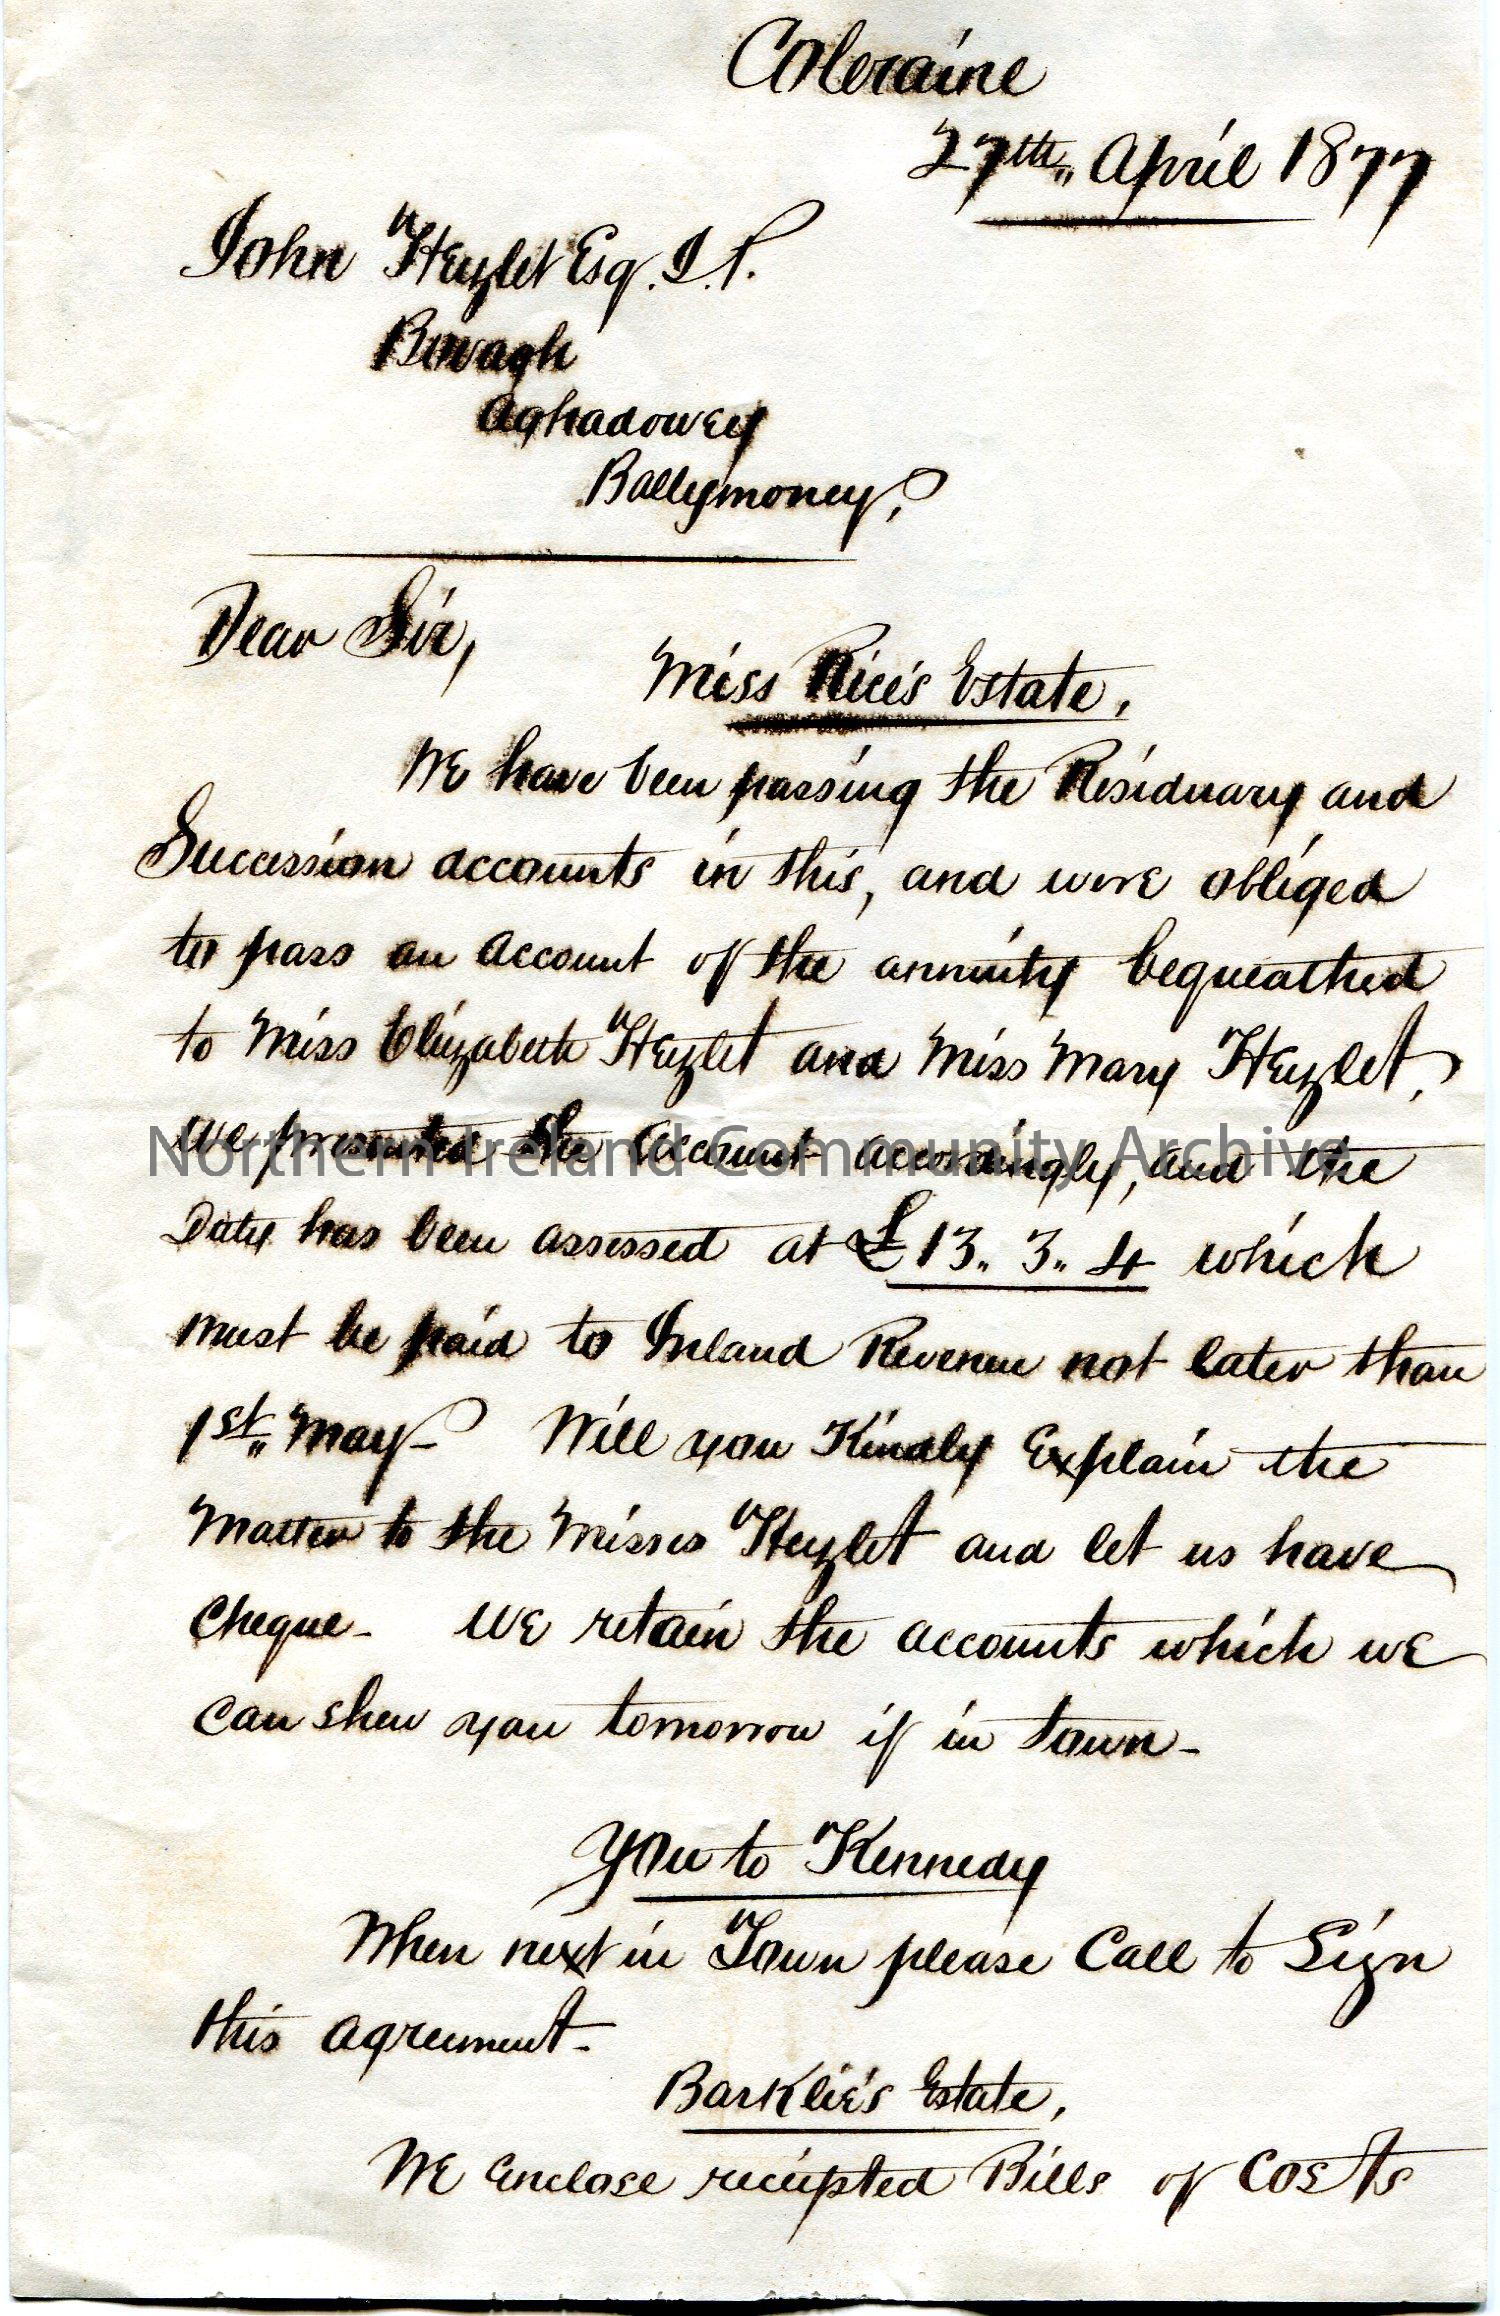 Coleraine
27th April 1877
John Heyzlet Esq. J.P.
Bovagh
Aghadowey
Ballymoney,
Dear Sir,
Miss Rice's Estate,
We have been passing the Residuary and
Succession accounts in this, and were obliged
to pass an account of the annuity bequeathed
to Miss Elizabeth Heyzlet and Miss Mary Heyzlet,
we presented the account accordingly, and the
Duty has been assessed at £13.. 3.. 4 which
must be paid to Inland Revenue not later than
1st May - Will you Kindly Explain the
matter to the Misses Heyzlet and let us have
cheque - We retain the accounts which we
can shew you tomorrow if in town -
You to Kennedy
When next in Town please Call to Sign
this agreement -
Barklie's Estate,
We enclose receipted Bills of Costs
Northern Ireland Community Archive